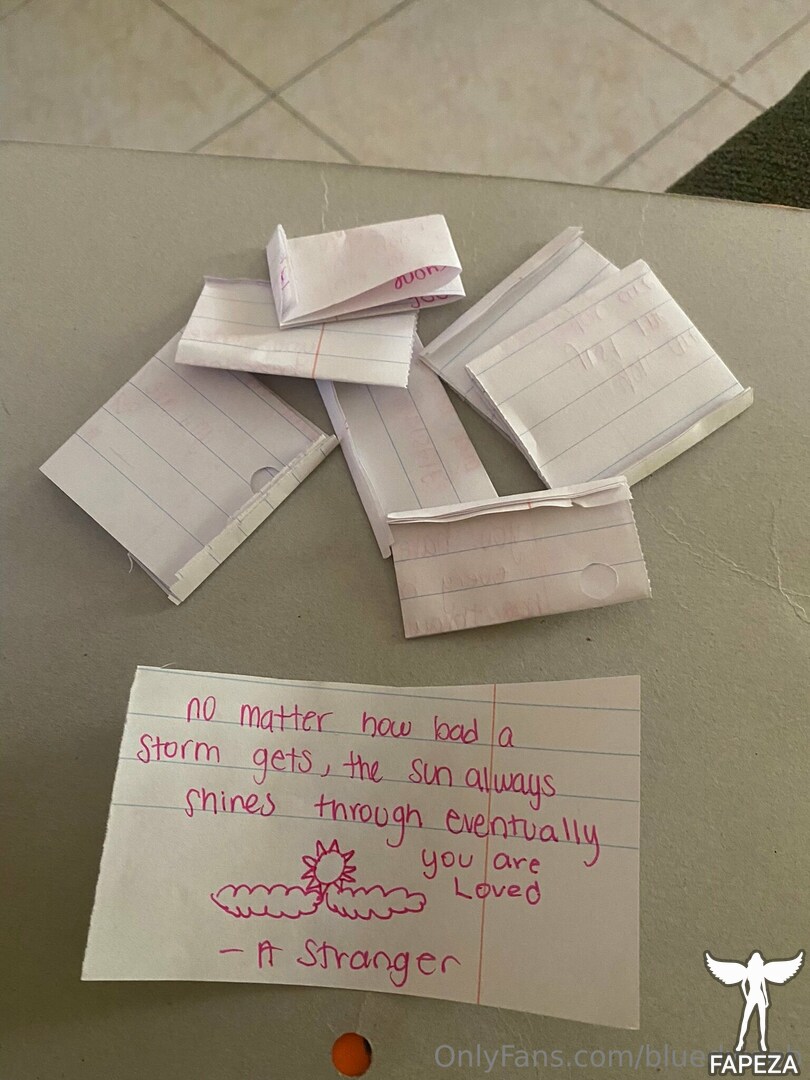 no matter how bad a
storm gets, the sun always
shines through eventually
you are
Loved
- A Stranger
FAPEZA